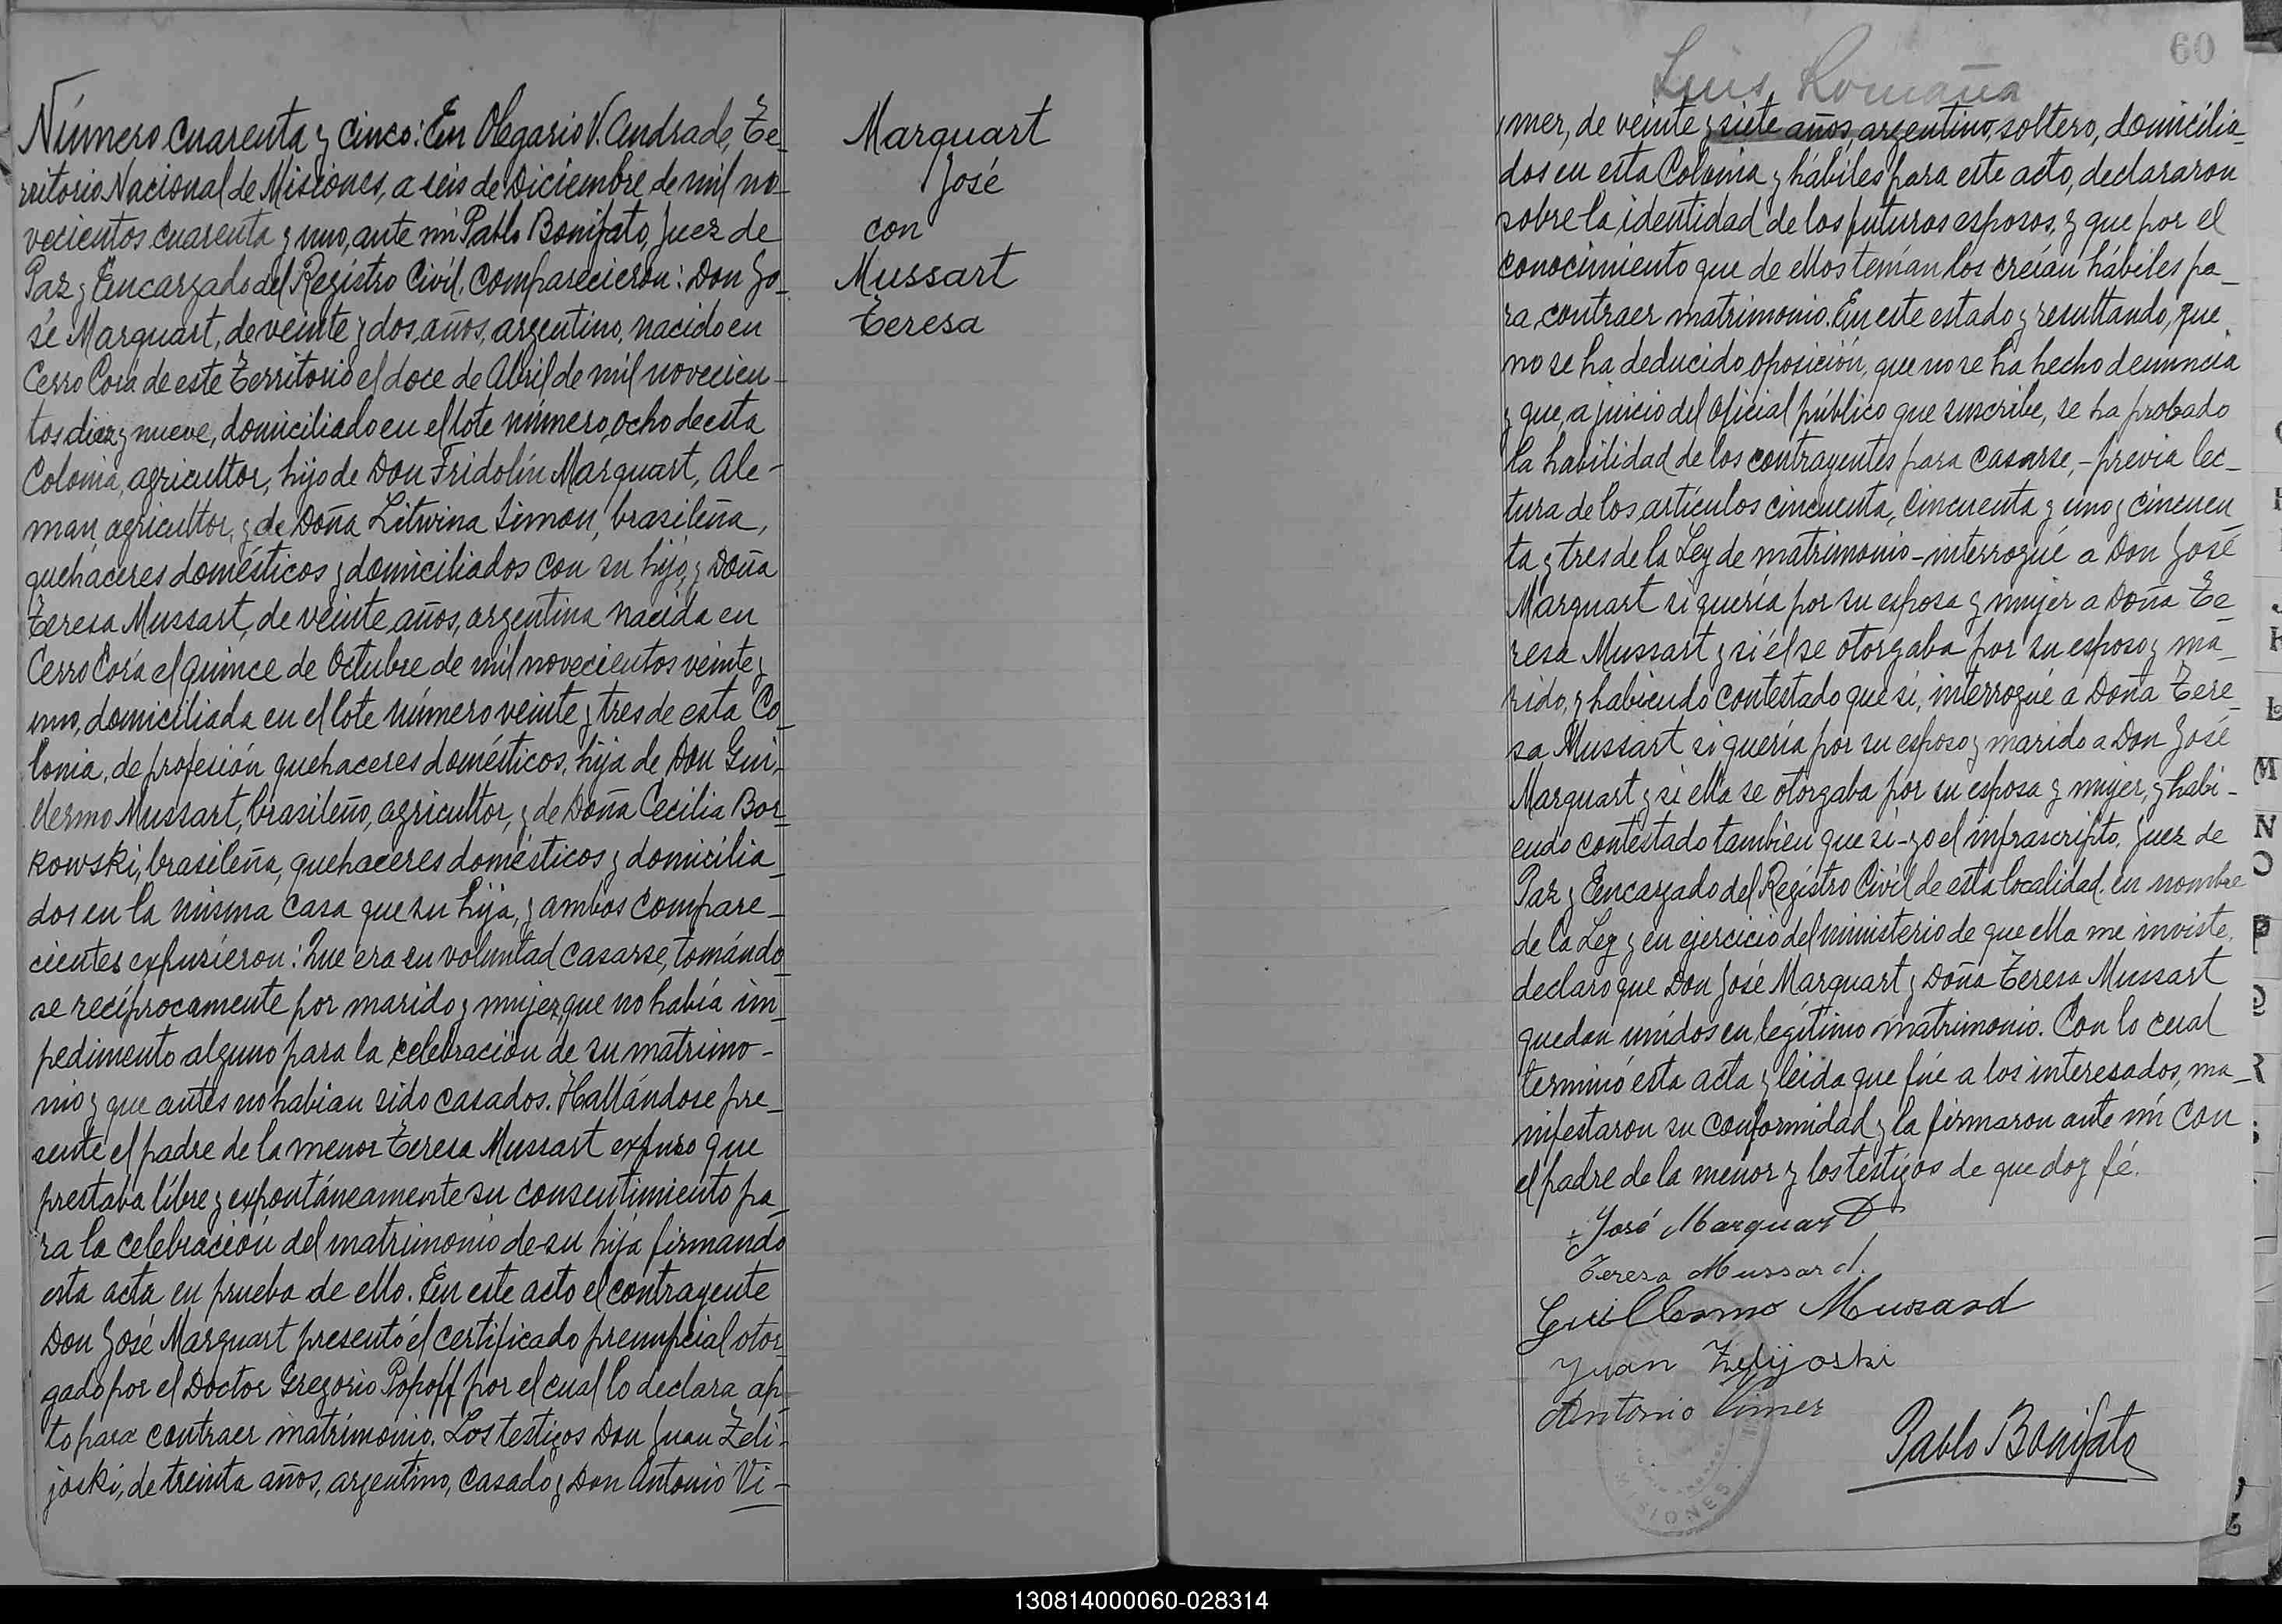 Número cuarenta y cinco: En Olegario V. Andrade, Te-
rritorio Nacional de Misiones, a seis de Diciembre de mil no-
vecientos cuarenta y uno, ante mí Pablo Bonifato, Juez de
Paz y Encargado del Registro Civil, comparecieron: Don Jo-
sé Marquart, de veinte y dos años, argentino, nacido en
Cerro Cora de este Territorio el doce de Abril de mil novecien-
tos diez y nueve, domiciliado en el lote número ocho de esta
Colonia, agricultor, hijo de Don Fridolín Marquart, Ale-
man, agricultor, y de Doña Litwina Simon, brasileña,
quehaceres domésticos y domiciliados con su hijo, y Doña
Teresa Mussart, de veinte años, argentina nacida en
Cerro Corá el quince de Octubre de mil novecientos veinte y
uno, domiciliada en el lote número veinte y tres de esta Co-
lonia, de profesión quehaceres domésticos, hija de Don Gui-
llermo Mussart, brasileño, agricultor, y de Doña Cecilia Bor-
kowski, brasileña, quehaceres domésticos y domicilia-
dos en la misma casa que su hija, y ambos compare-
cientes expusieron: Que era su voluntad casarse, tomándo-
se recíprocamente por marido y mujer, que no había im-
pedimento alguno para la celebración de su matrimo-
nio y que antes no habian sido casados. Hallándose pre-
sente el padre de la menor Teresa Mussart expuso que
prestaba libre y expontáneamente su consentimiento pa-
ra la celebración del matrimonio de su hija firmando
esta acta en prueba de ello. En este acto el contrayente
Don José Marquart presentó el certificado prenupcial otor-
gado por el Doctor Gregorio Popoff por el cual lo declara ap-
to para contraer matrimonio. Los testigos Don Juan Zeli-
joski, de treinta años, argentino, casado y Don Antonio Vi-
Marquart
José
con
Mussart
Teresa
60
Luis Romaña
mer, de veinte y siete años, argentino, soltero, domicilia-
dos en esta Colonia y hábiles para este acto, declararon
sobre la identidad de los futuros esposos, y que por el
conocimiento que de ellos tenían los creían hábiles pa-
ra contraer matrimonio. En este estado y resultando, que
no se ha deducido oposición, que no se ha hecho denuncia
y que, a juicio del oficial público que suscribe, se ha probado
la habilidad de los contrayentes para casarse, - previa lec-
tura de los artículos cincuenta, cincuenta y uno y cincuen
ta y tres de la Ley de matrimonio - interrogué a Don José
Marquart si quería por su esposa y mujer a Doña Te-
resa Mussart y si él se otorgaba por su esposo y ma-
rido, y habiendo contestado que sí, interrogué a Doña Tere-
sa Mussart si quería por su esposo y marido a Don José
Marquart y si ella se otorgaba por su esposa y mujer, y habi-
endo contestado tambien que sí - yo el infrascripto, Juez de
Paz y Encargado del Registro Civil de esta localidad, en nombre
de la Ley y en ejercicio del ministerio de que ella me inviste,
declaro que Don José Marquart y Doña Teresa Mussart
quedan unidos en legítimo matrimonio. Con lo cual
terminó esta acta y leida que fué a los interesados, ma-
nifestaron su conformidad y la firmaron ante mí con
el padre de la menor y los testigos de que doy fé.
José Marquard
Teresa Mussard.
Guillermo Mussard
Juan Zelijoski
Antonio Vimer
Pablo Bonifato
MISIONES
L
M
N
O
P
Q
R
S
130814000060-028314